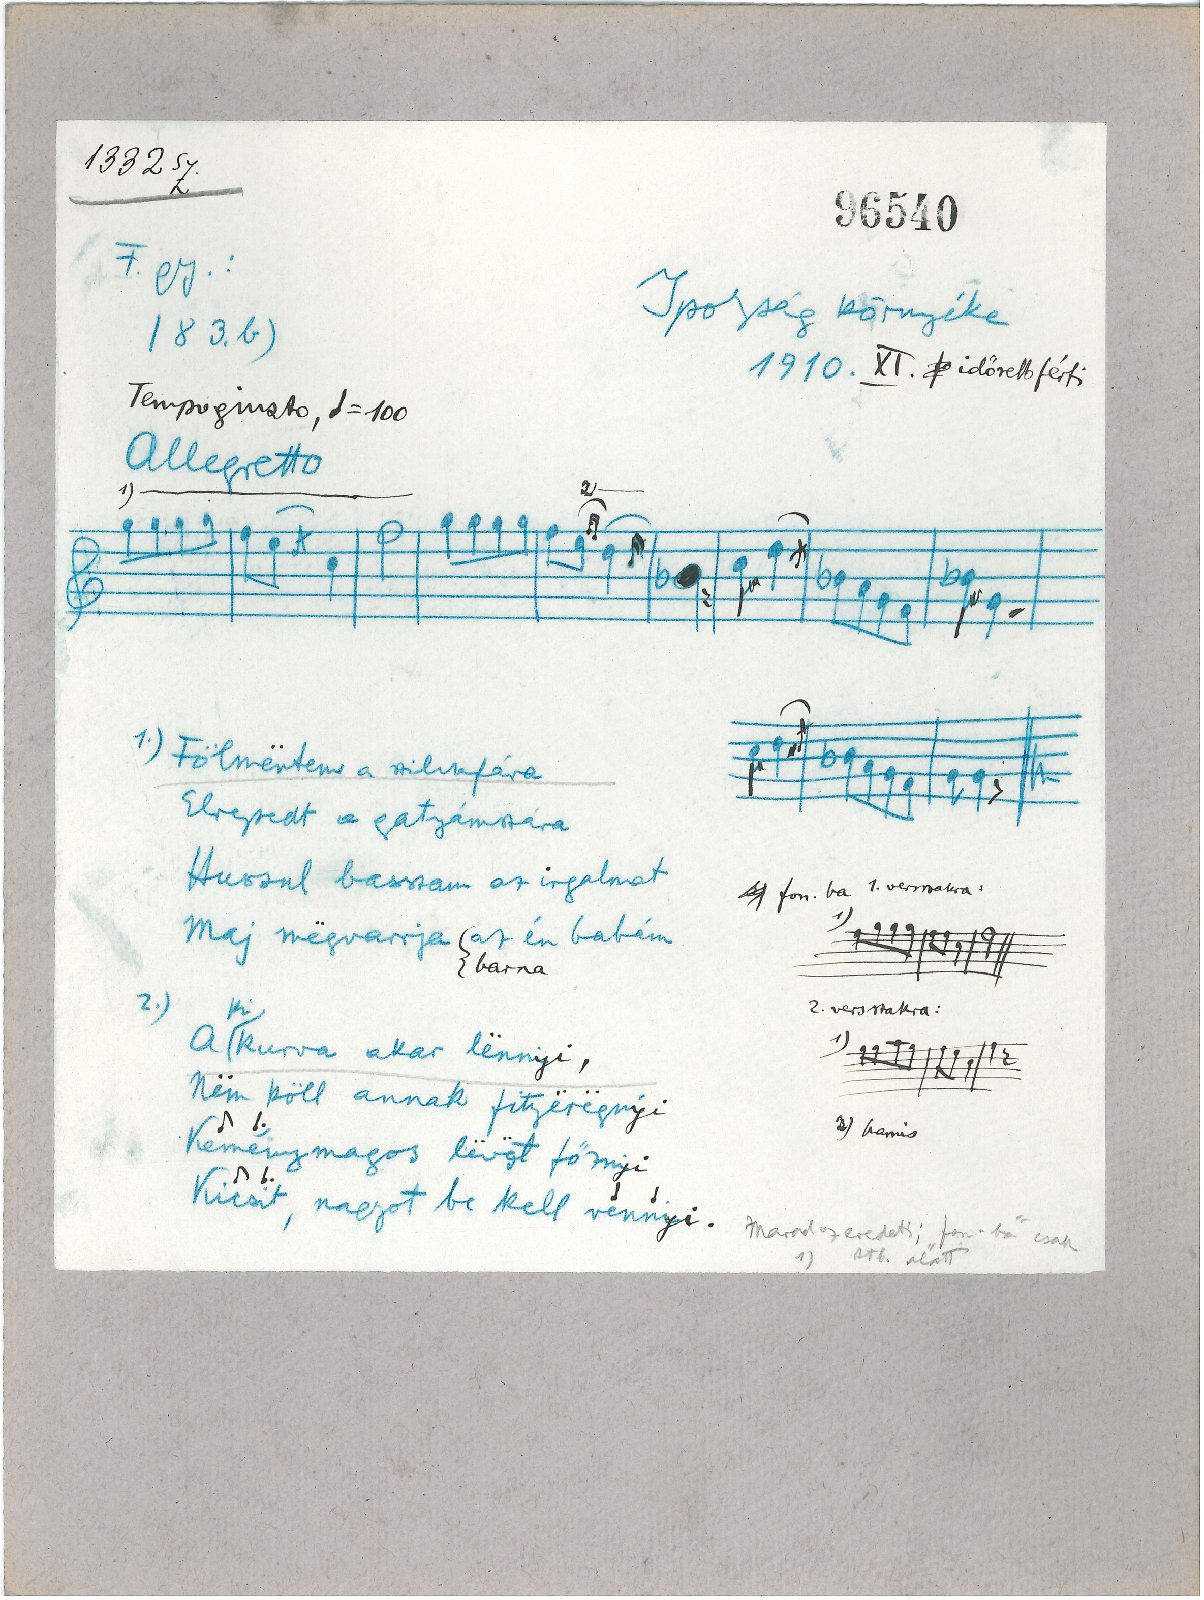 1332 sz.
96540
F. gy.:
183.b)
Ipolyság környéke
1910. XI. idősebb férfi
Tempo giusto, ♩=100
Allegretto
1)
2)
1.) Fölmëntem a szilvafára
Elrepedt a gatyámszára
Huszul basszam az irgalmat
Maj mëgvarrja az én babám
barna
2.)
ki
A kurva akar lënnyi,
Nëm köll annak fityërëgnyi
Keménymagos lëvöt főznyi
Kicsit, nagyot be kell vënnyi.
fon. ba 1. versszakra:
1)
2. versszakra:
1)
2) hamis
Marad az eredeti; "fon.-ba" csak
1) stb. alatt